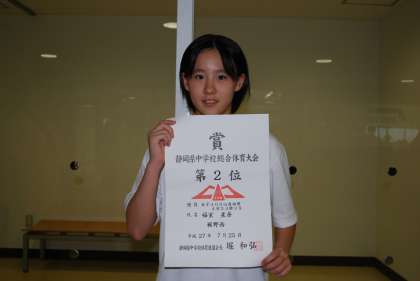 賞
静岡県中学校総合体育大会
第2位
種目
氏名
裾野西
平成 27年 7月25日
静岡県中学校体育連盟会長 堀 和弘